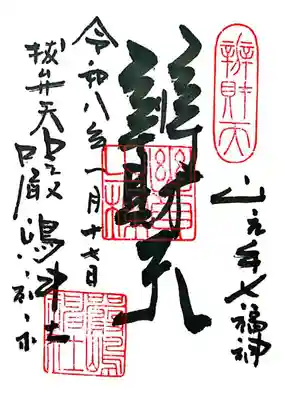 辨財天
山之手七福神
辨財天
令和八年一月十七日
抜弁天 厳嶋神社
嚴嶋神社